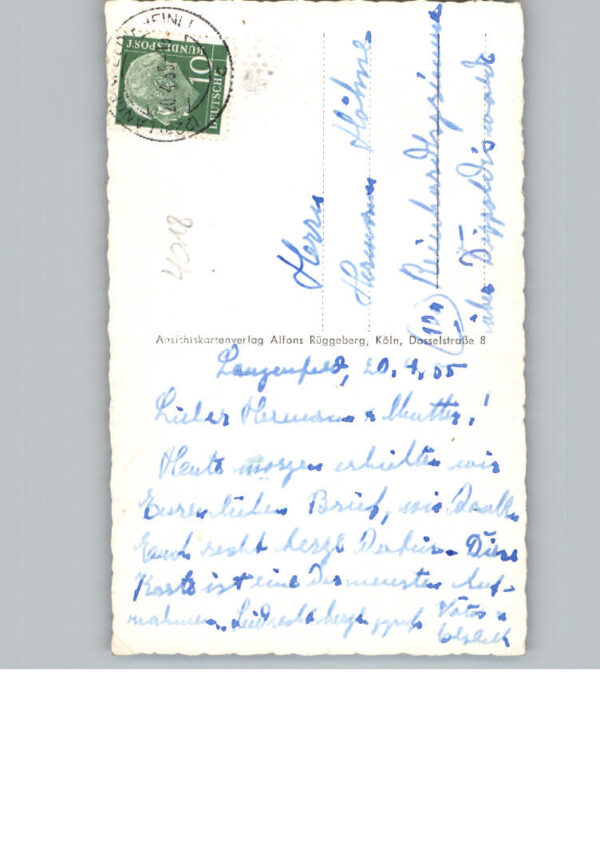 DEUTSCHE
BUNDESPOST
10
4018
Herrn
Hermann Höhne
(10a) Reinhardtsgrimma
über Dippoldiswalde
Ansichtskartenverlag Alfons Rüggeberg, Köln, Dasselstraße 8
Langenfeld, 20.4.55
Lieber Hermann u Mutter!
Heute morgen erhielten wir
Euren lieben Brief, wir danken
Euch recht herzl dafür. Diese
Karte ist eine der neuesten Auf-
nahmen. Seid recht herzl gegrüßt
Vater u